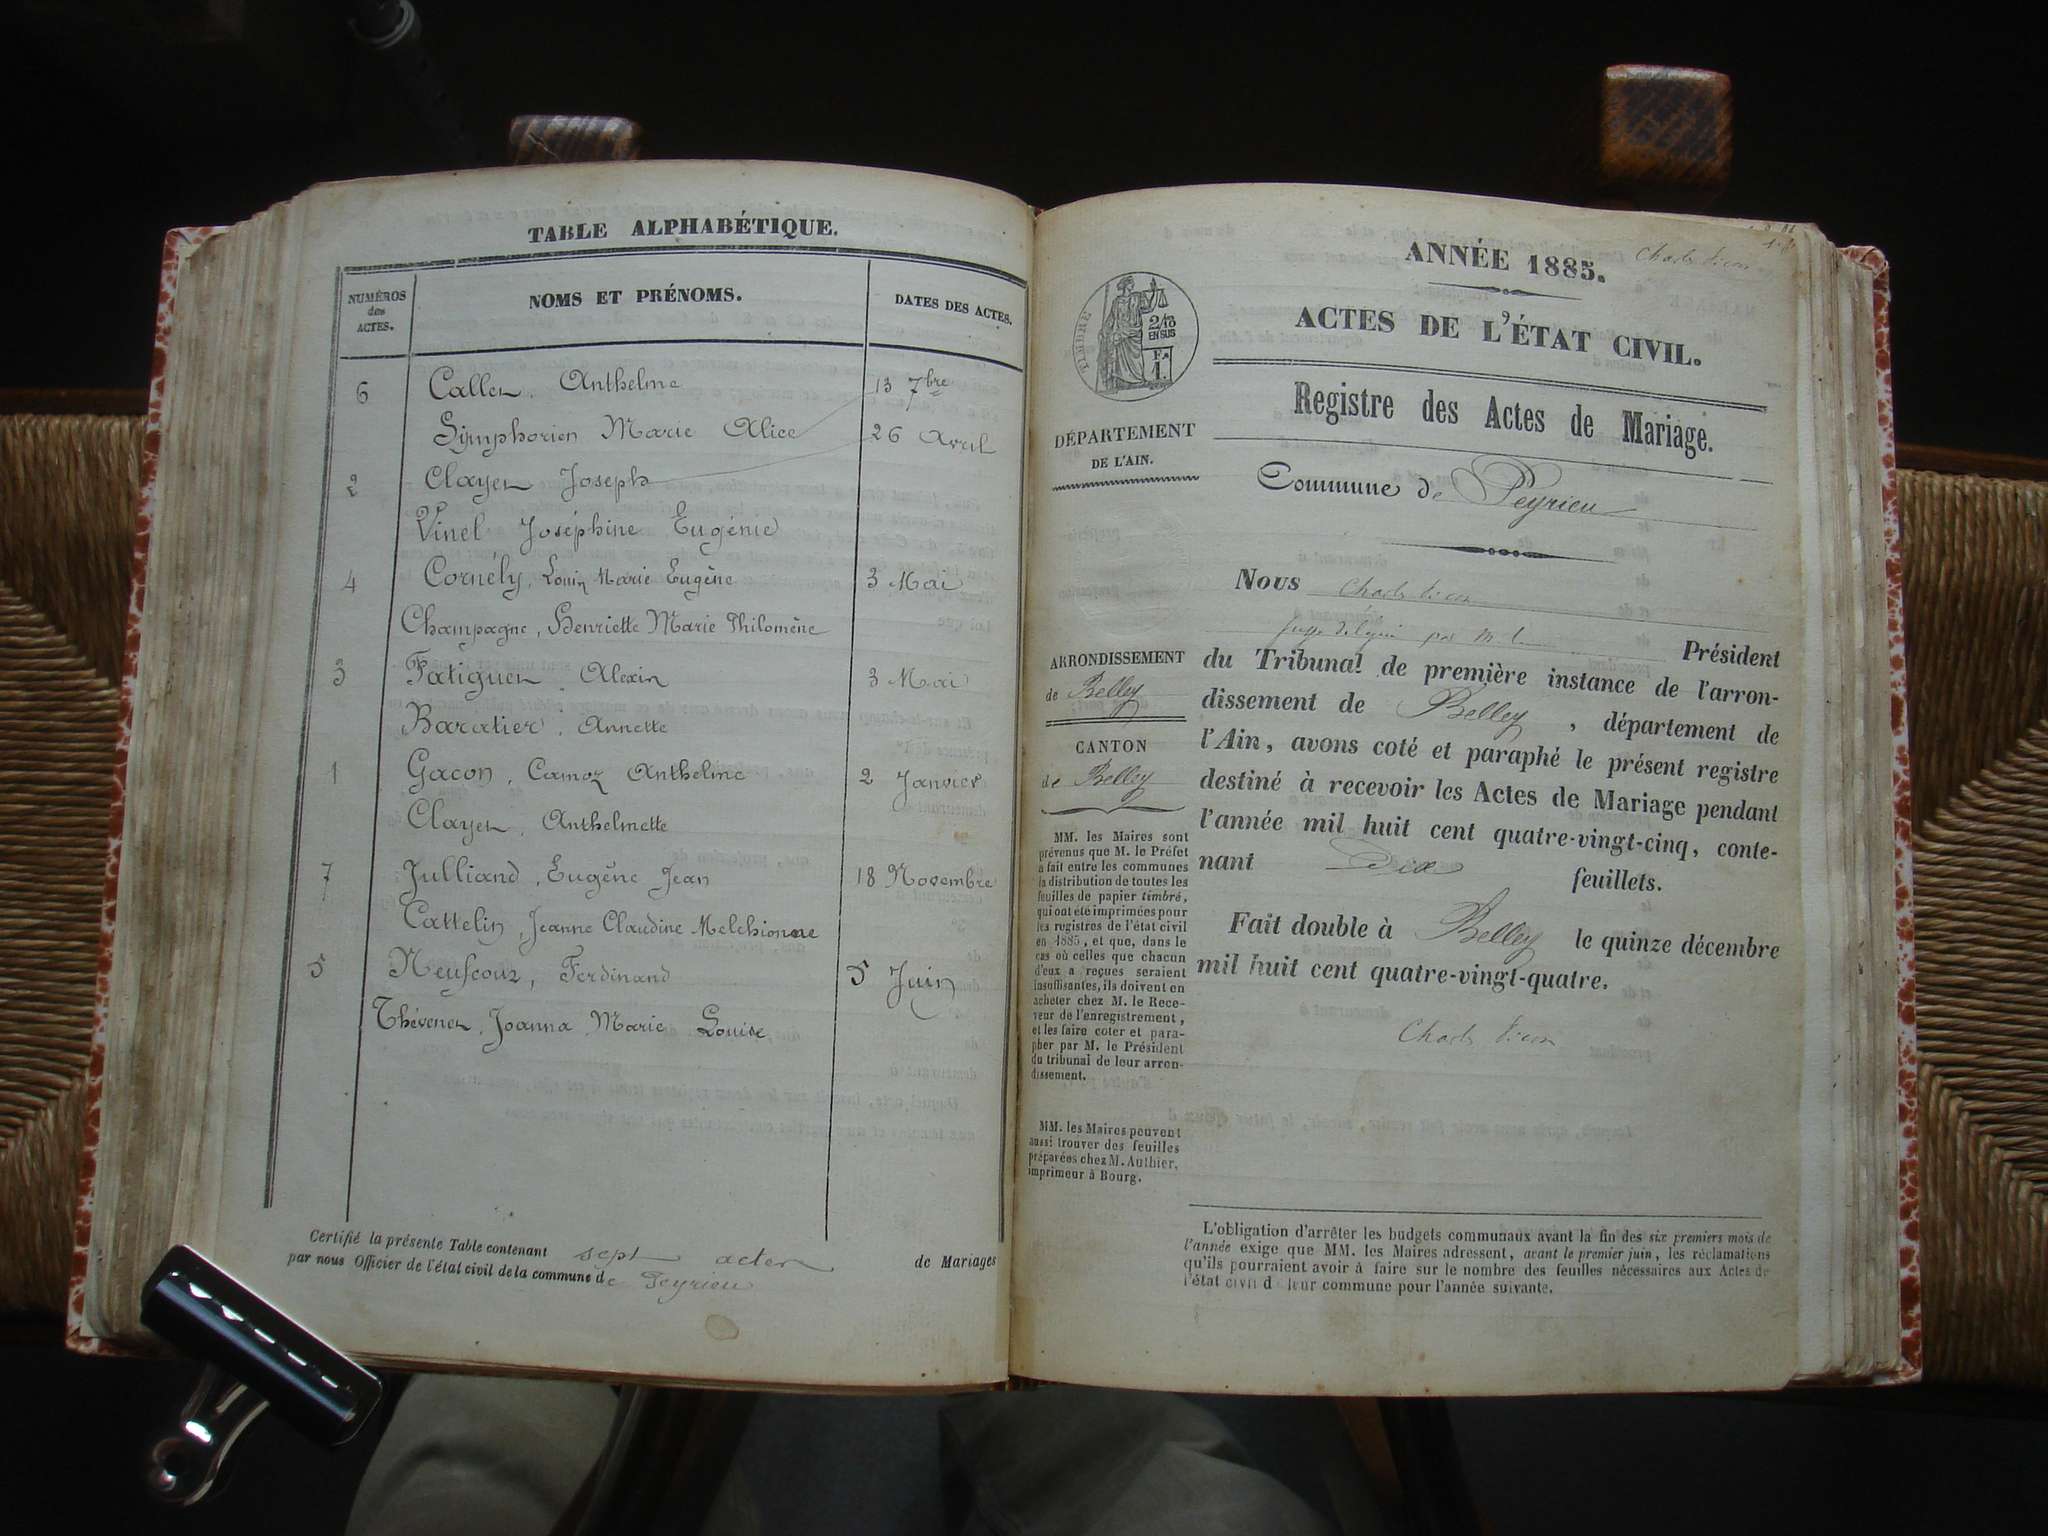 TABLE ALPHABÉTIQUE.
NUMÉROS des ACTES.
NOMS ET PRÉNOMS.
DATES DES ACTES.
6 Callet, Anthelme 13 7bre
Symphorien Marie Alice 26 Avril
2 Clayet Joseph
Vinel Joséphine Eugénie
4 Cornély, Louis Marie Eugène 3 Mai
Champagne, Henriette Marie Philomène
3 Fatiguet, Alexis 3 Mai
Baratier, Annette
1 Gacon, Camoz Anthelme 2 Janvier
Clayet, Anthelmette
7 Julliand, Eugène Jean 18 Novembre
Cattelin, Jeanne Claudine Melchionne
5 Ferdinand 5 Juin
Thévenet, Joanna Marie Louise
Certifié la présente Table contenant sept actes de Mariages
par nous Officier de l'état civil de la commune de Peyrieu
ANNÉE 1885.
ACTES DE L'ÉTAT CIVIL.
Registre des Actes de Mariage.
TIMBRE
2/10
EN SUS
F.
1.
DÉPARTEMENT
DE L'AIN.
Commune de Peyrieu
ARRONDISSEMENT
de Belley
CANTON
de Belley
MM. les Maires sont
prévenus que M. le Préfet
a fait entre les communes
la distribution de toutes les
feuilles de papier timbré,
qui ont été imprimées pour
les registres de l'état civil
en 1885, et que, dans le
cas où celles que chacun
d'eux a reçues seraient
insuffisantes, ils doivent en
acheter chez M. le Rece-
veur de l'enregistrement,
et les faire coter et para-
pher par M. le Président
du tribunal de leur arron-
dissement.
MM. les Maires peuvent
aussi trouver des feuilles
préparées chez M. Authier,
imprimeur à Bourg.
Nous
Juge par M. le Président
du Tribunal de première instance de l'arron-
dissement de Belley, département de
l'Ain, avons coté et paraphé le présent registre
destiné à recevoir les Actes de Mariage pendant
l'année mil huit cent quatre-vingt-cinq, conte-
nant Dix feuillets.
Fait double à Belley le quinze décembre
mil huit cent quatre-vingt-quatre.
L'obligation d'arrêter les budgets communaux avant la fin des six premiers mois de
l'année exige que MM. les Maires adressent, avant le premier juin, les réclamations
qu'ils pourraient avoir à faire sur le nombre des feuilles nécessaires aux Actes de
l'état civil d leur commune pour l'année suivante.